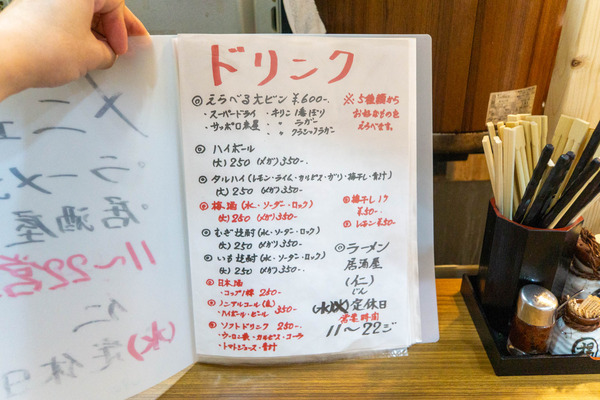 ドリンク
◎えらべる大ビン ¥600-.
・スーパードライ ・キリン1番搾り
・サッポロ黒星 ・〃 ラガー
・〃 クラシックラガー
※5種類から
お好なものを
えらべます。
◎ハイボール
(大)250 (メガ)350-.
◎タルハイ(レモン・ライム・カルピス・ガリ・梅干し・青汁)
(大)250 (メガ)350-.
◎梅酒(水・ソーダ・ロック)
(大)250 (メガ)350-.
◎むぎ焼酎(水・ソーダ・ロック)
(大)250 (メガ)350-.
◎いも焼酎(水・ソーダ・ロック)
(大)250 (メガ)350-.
◎日本酒
・コップ1杯 250-
◎ノンアルコール
・ハイボール・ビール 350-
◎ソフトドリンク 250-.
・ウーロン茶・カルピス・コーラ
・トマトジュース・青汁
◎梅干し1ケ
¥50-.
◎レモン¥50-.
◎ラーメン
居酒屋
(仁)
じん
(水)定休日
営業時間
11〜22ジ
メニュー
ラーメン
居酒屋
11〜22
仁
(水)定休日